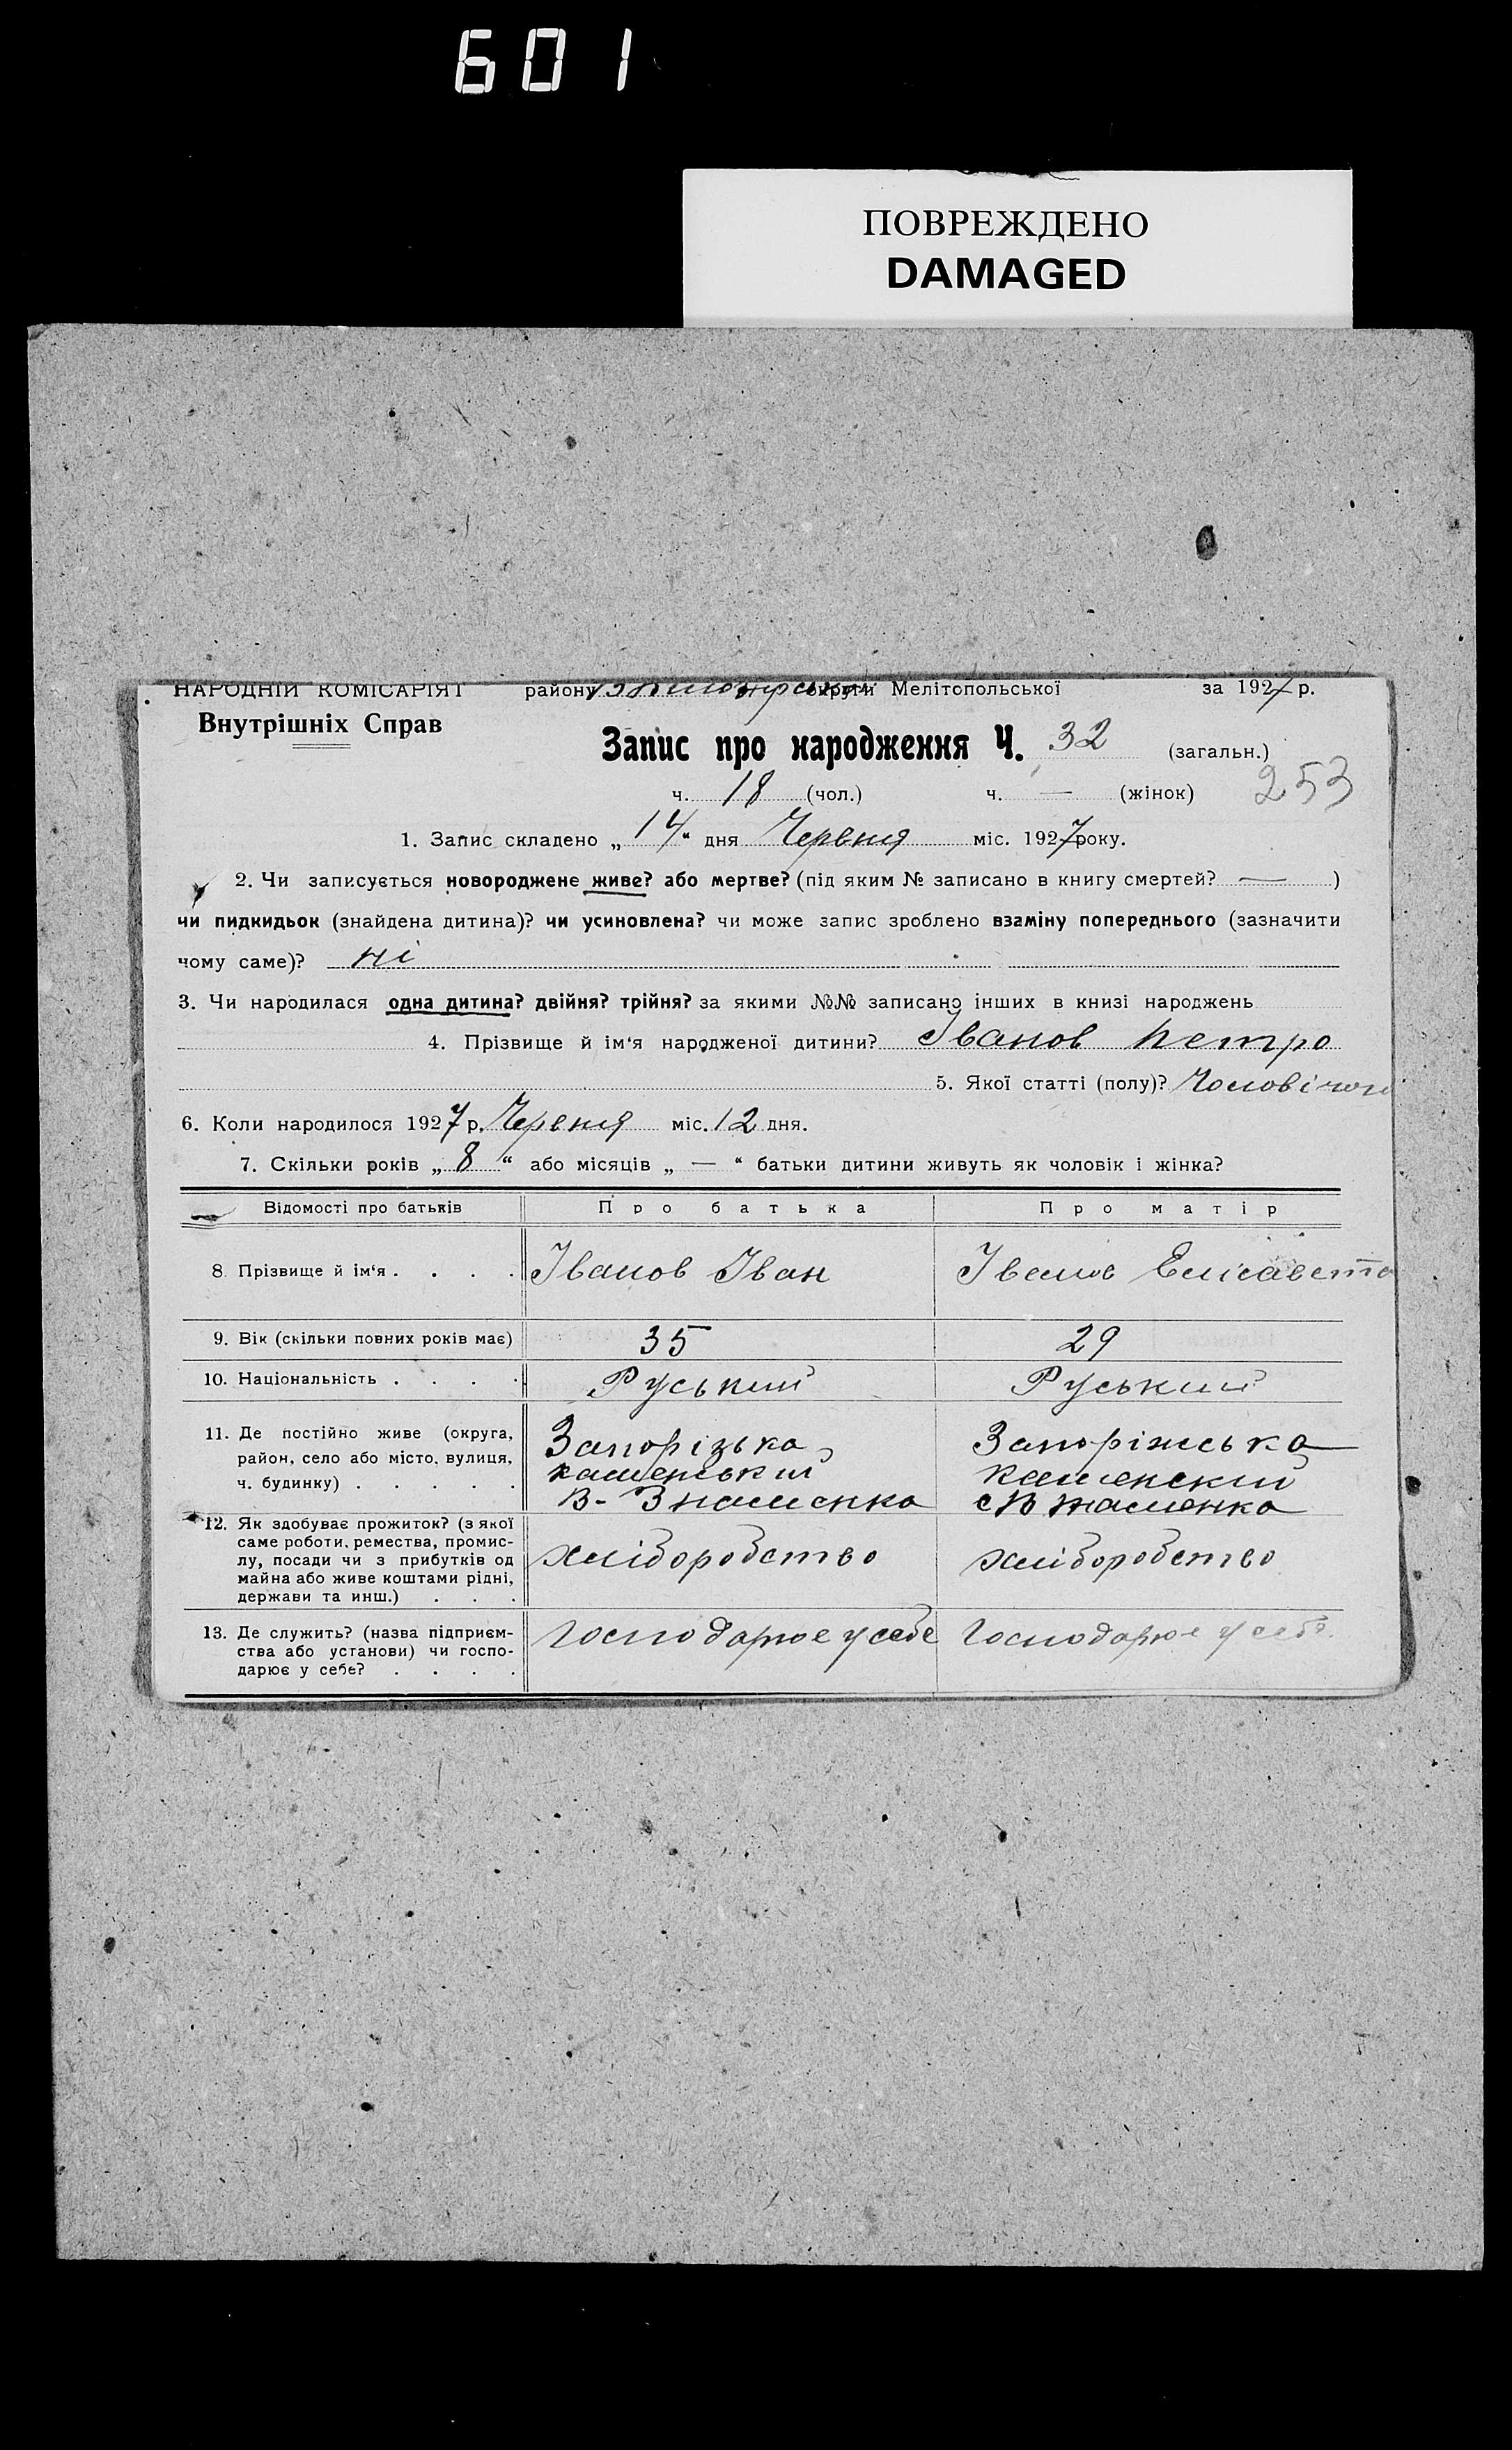 601
ПОВРЕЖДЕНО
DAMAGED
НАРОДНІЙ КОМІСАРІЯТ району округи Мелітопольської за 1927 р.
Внутрішніх Справ
Запис про народження Ч. 32 (загальн.)
ч. 18 (чол.) ч. — (жінок) 253
1. Запис складено „14“ дня Червня міс. 1927 року.
2. Чи записується новороджене живе? або мертве? (під яким № записано в книгу смертей? — )
чи пидкидьок (знайдена дитина)? чи усиновлена? чи може запис зроблено взаміну попереднього (зазначити
чому саме)? ні
3. Чи народилася одна дитина? двійня? трійня? за якими №№ записано інших в книзі народжень
4. Прізвище й ім‘я народженої дитини? Іванов Петро
5. Якої статті (полу)? Чоловічого
6. Коли народилося 1927 р. Червня міс. 12 дня.
7. Скільки років „ 8 “ або місяців „ — “ батьки дитини живуть як чоловік і жінка?
Відомості про батьків Про батька Про матір
8. Прізвище й ім‘я . . . . Іванов Іван Іванов Елісавета
9. Вік (скільки повних років має) 35 29
10. Національність . . . . Руський Руський
11. Де постійно живе (округа,
район, село або місто, вулиця,
ч. будинку) . . . . .
Запорізька
каменський
В-Знаменка
Запоріжська
каменский
с В Знаменка
12. Як здобуває прожиток? (з якої
саме роботи, ремества, промис-
лу, посади чи з прибутків од
майна або живе коштами рідні,
держави та инш.) . . .
хліборобство хліборобство
13. Де служить? (назва підприєм-
ства або установи) чи госпо-
дарює у себе? . . . .
Господарює у себе Господарює у себе.